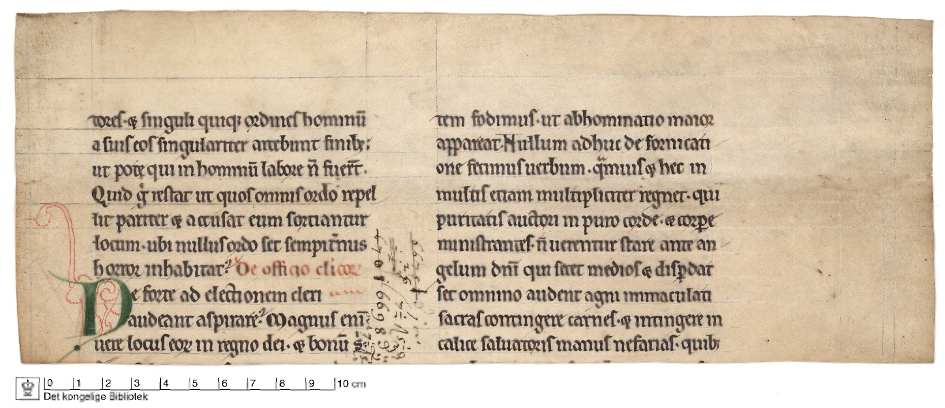 tores ⁊ singuli quiq; ordines hominū
a suis eos singulariter arcebunt finib;
ut pote qui in hominū labore ñ fuer̄t.
Quid g̊ restat ut quos omnis ordo repel
lit pariter ⁊ accusat eum sortiantur
locum. ubi nullus ordo set sempit̄nus
horror inhabitat? De officio clicor
Ne forte ad elect̄ionem cleri
audeant aspirare? Magnus eni
uere locus eor in regno dei. ⁊ bonū
tem fodimus. ut abhominatio maior
appareat. Nullum adhuc de fornicati
one fecimus uerbum. q̄muis ⁊ hec in
multis etiam multipliciter regnet. qui
puritatis auctori in puro corde. ⁊ corpe
ministrantes. ñ uerentur stare ante an
gelum dnī qui secet medios ⁊ disp̄dat
set omnino audent agni immaculati
sacras contingere carnes. ⁊ intingere in
calice saluatoris manus nefarias. quib;
0 1 2 3 4 5 6 7 8 9 10 cm
Det kongelige Bibliotek